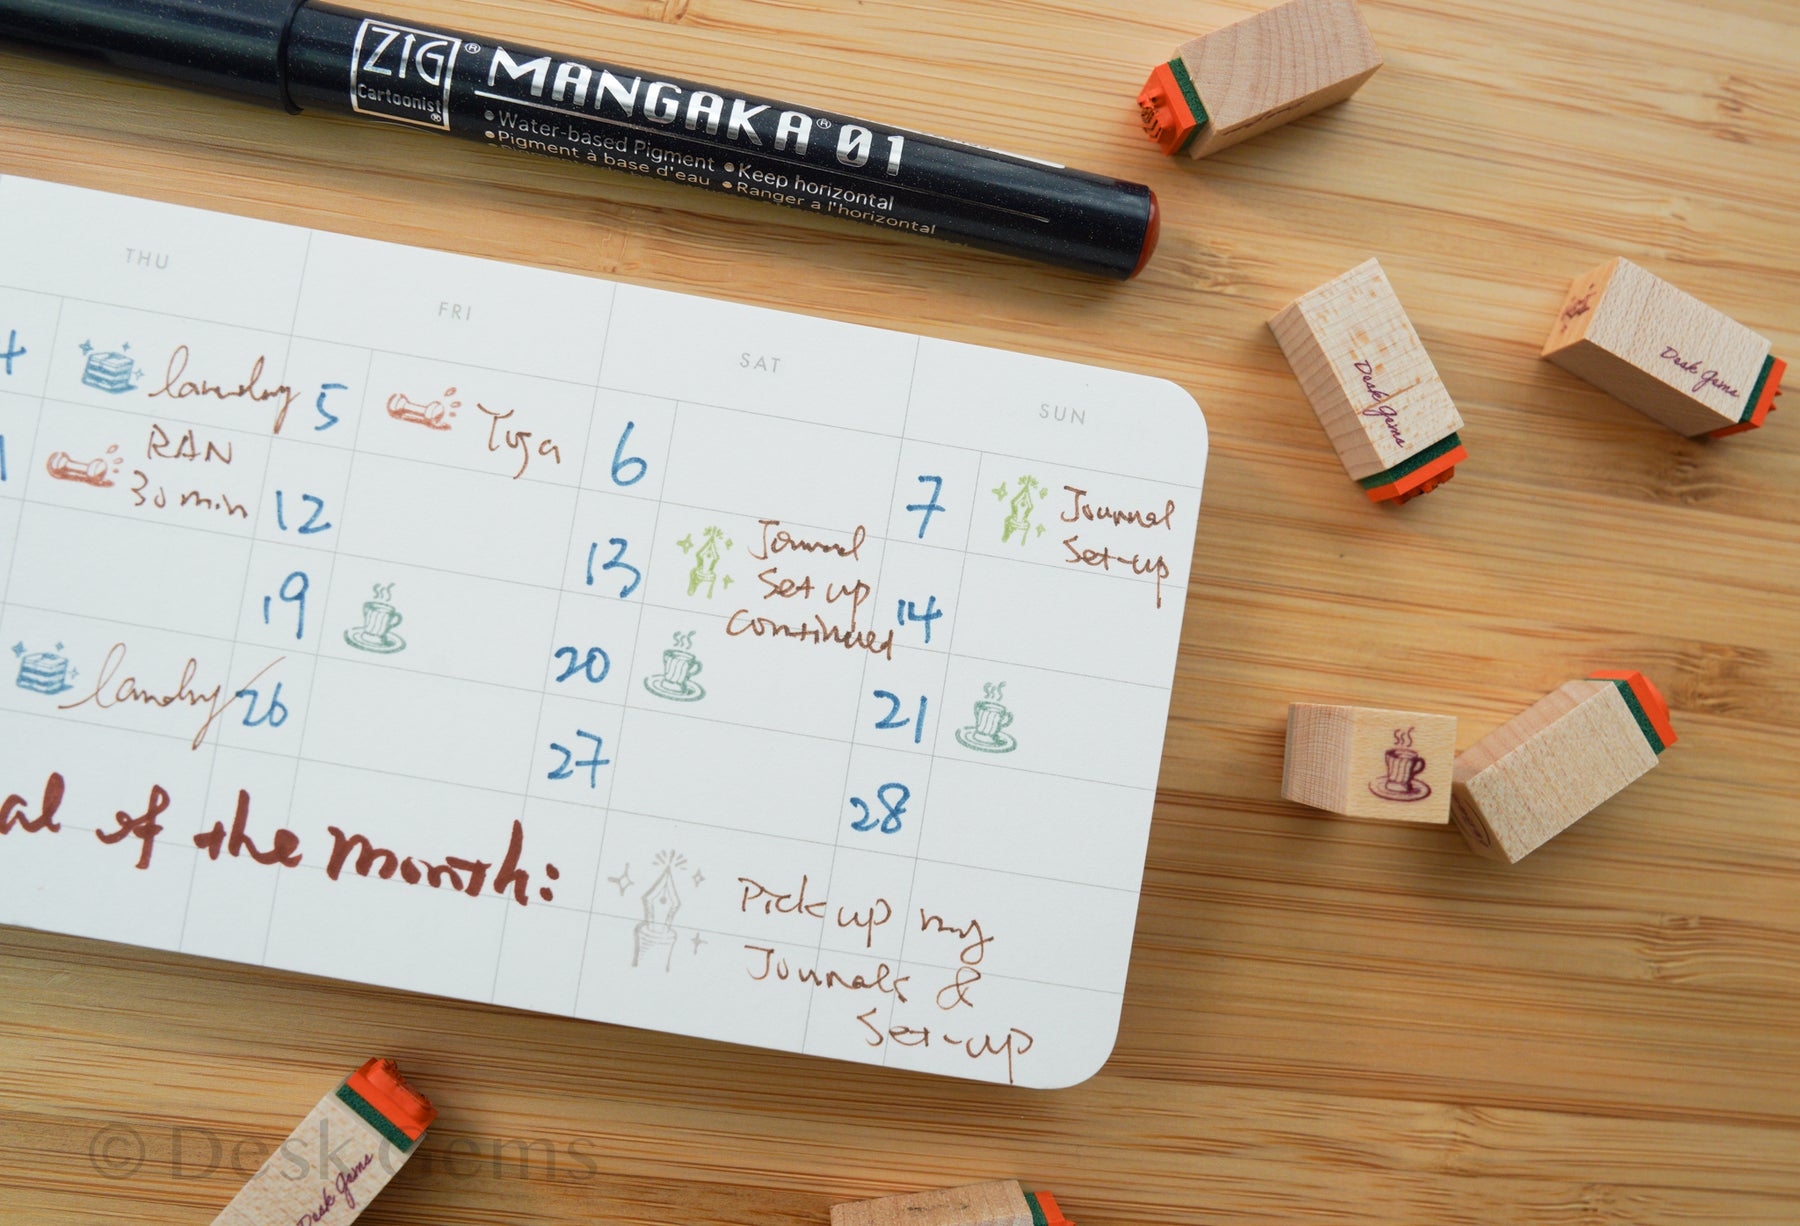 ZIG®
Cartoonist®
MANGAKA® 01
•Water-based Pigment •Keep horizontal
•Pigment à base d'eau •Ranger a l'horizontal
THU
FRI
SAT
SUN
laundry
5
Yoga
6
7
Journal
Set-up
RAN
30 min
12
13
Journal
Set up
Continued
14
19
20
21
laundry
26
27
28
al of the month:
Pick up my
Journals &
Set-up
Desk Gems
Desk Gems
Desk Gems
© Desk Gems